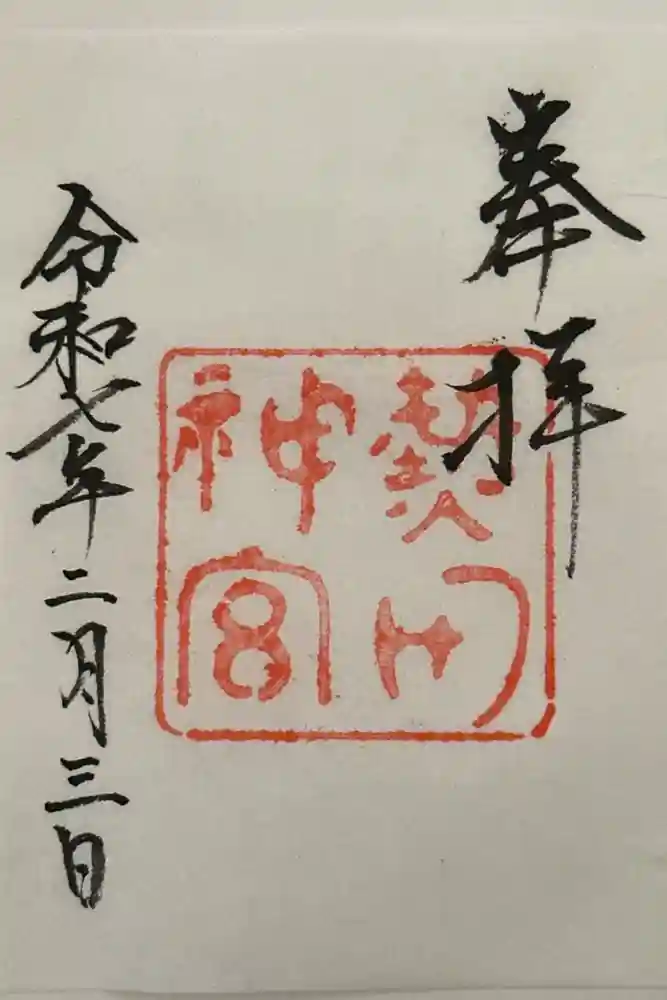 奉拝
熱田
神宮
令和七年二月三日